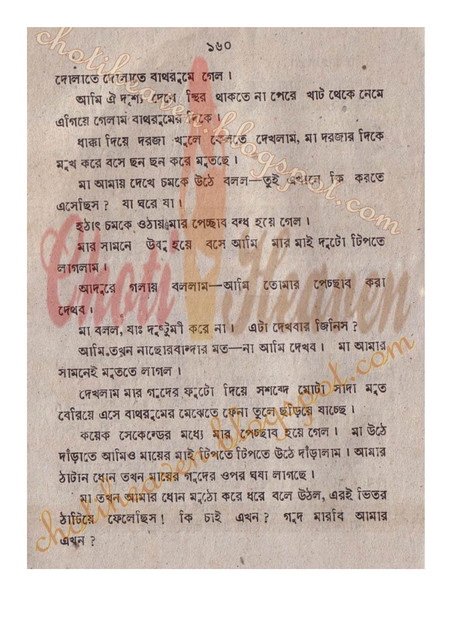 ১৬০
দোলাতে দোলাতে বাথরুমে গেল।
আমি ঐ দৃশ্য দেখে স্থির থাকতে না পেরে খাট থেকে নেমে
এগিয়ে গেলাম বাথরুমের দিকে।
ধাক্কা দিয়ে দরজা খুলে ফেলতে দেখলাম, মা দরজার দিকে
মুখ করে বসে ছন ছন করে মুতছে।
মা আমায় দেখে চমকে উঠে বলল—তুই এখানে কি করতে
এসেছিস? যা ঘরে যা।
হঠাৎ চমকে ওঠায় মার পেচ্ছাব বন্ধ হয়ে গেল।
মার সামনে উবু হয়ে বসে আমি মার মাই দুটো টিপতে
লাগলাম।
আদুরে গলায় বললাম—আমি তোমার পেচ্ছাব করা
দেখব।
মা বলল, যাঃ দুষ্টুমী করে না। এটা দেখবার জিনিস?
আমি তখন নাছোরবান্দার মত—না আমি দেখব। মা আমার
সামনেই মুততে লাগল।
দেখলাম মার গুদের ফুটো দিয়ে সশব্দে মোটা সাদা মুত
বেরিয়ে এসে বাথরুমের মেঝেতে ফেনা তুলে ছড়িয়ে যাচ্ছে।
কয়েক সেকেন্ডের মধ্যে মার পেচ্ছাব হয়ে গেল। মা উঠে
দাঁড়াতে আমিও মায়ের মাই টিপতে টিপতে উঠে দাঁড়ালাম। আমার
ঠাটান ধোন তখন মায়ের গুদের ওপর ঘষা লাগছে।
মা তখন আমার ধোন মুঠো করে ধরে বলে উঠল, এরই ভিতর
ঠাটিয়ে ফেলেছিস! কি চাই এখন? গুদ মারবি আমার
এখন?
Choti Heaven
chotiheaven.blogspot.com
chotiheaven.blogspot.com
chotiheaven.blogspot.com